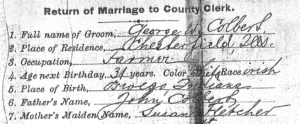 Return of Marriage to County Clerk.
1. Full Name of Groom, George W. Colbert
2. Place of Residence, Chesterfield Ills.
3. Occupation, Farmer
4. Age next Birthday, 34 years. Color Race
5. Place of Birth, Indiana
6. Father's Name, John Colbert
7. Mother's Maiden Name, Susan Fletcher